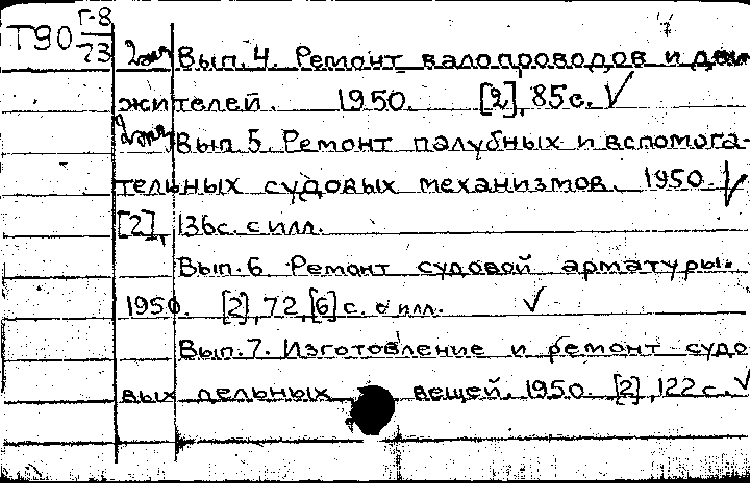 Т90 Г-8
73
2 экз Вып. 4. Ремонт валопроводов и дви
жителей. 1950. [2], 85 с. ✓
2 экз Вып. 5. Ремонт палубных и вспомога-
тельных судовых механизмов. 1950. ✓
[2], 136 с. с илл.
Вып. 6. Ремонт судовой арматуры.
1950. [2], 72, [6] с. с илл. ✓
Вып. 7. Изготовление и ремонт судо
вых дельных вещей. 1950. [2], 122 с. ✓